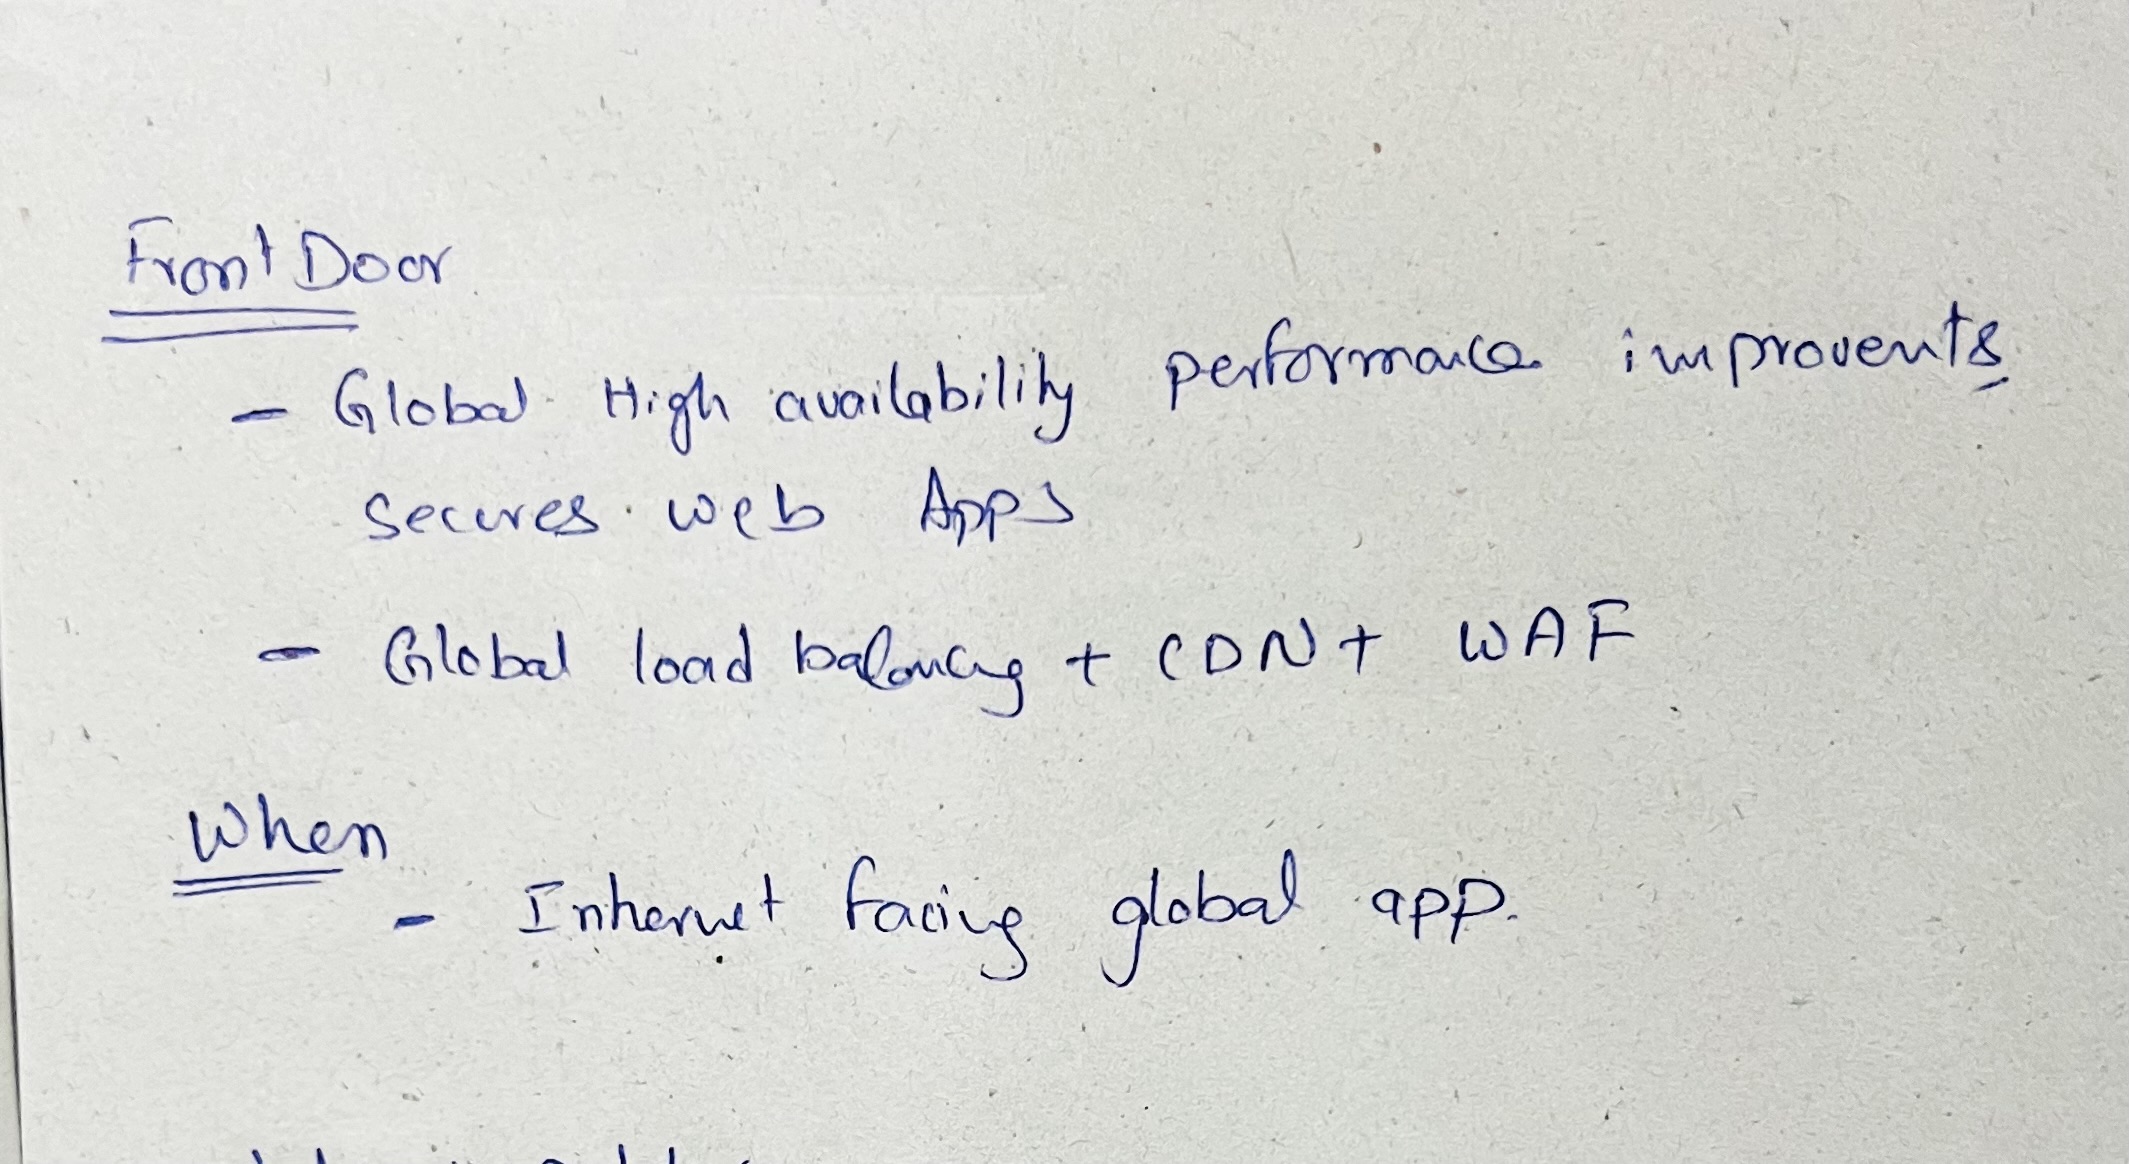 Front Door
- Global High availability performance improvents
secures web Apps
- Global load balancing + CDN + WAF
When
- Internet facing global app.